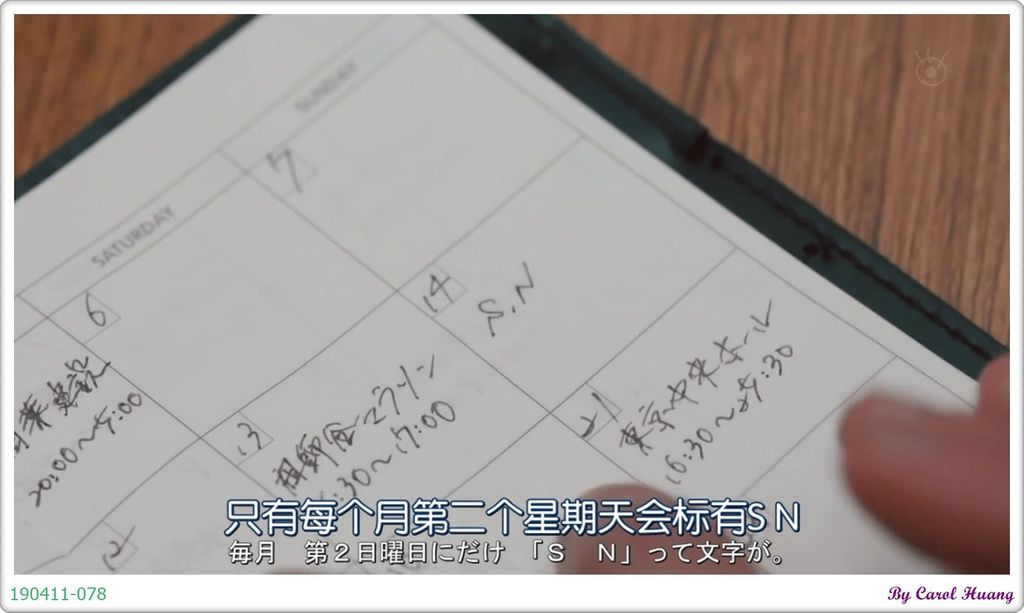 SUNDAY
SATURDAY
7
6
14
S.N
建設
20:00～5:00
13
マラソン
:30～17:00
21
東京中央ホール
16:30～
12
只有每个月第二个星期天会标有S N
毎月　第２日曜日にだけ　「Ｓ　Ｎ」って文字が。
190411-078
By Carol Huang